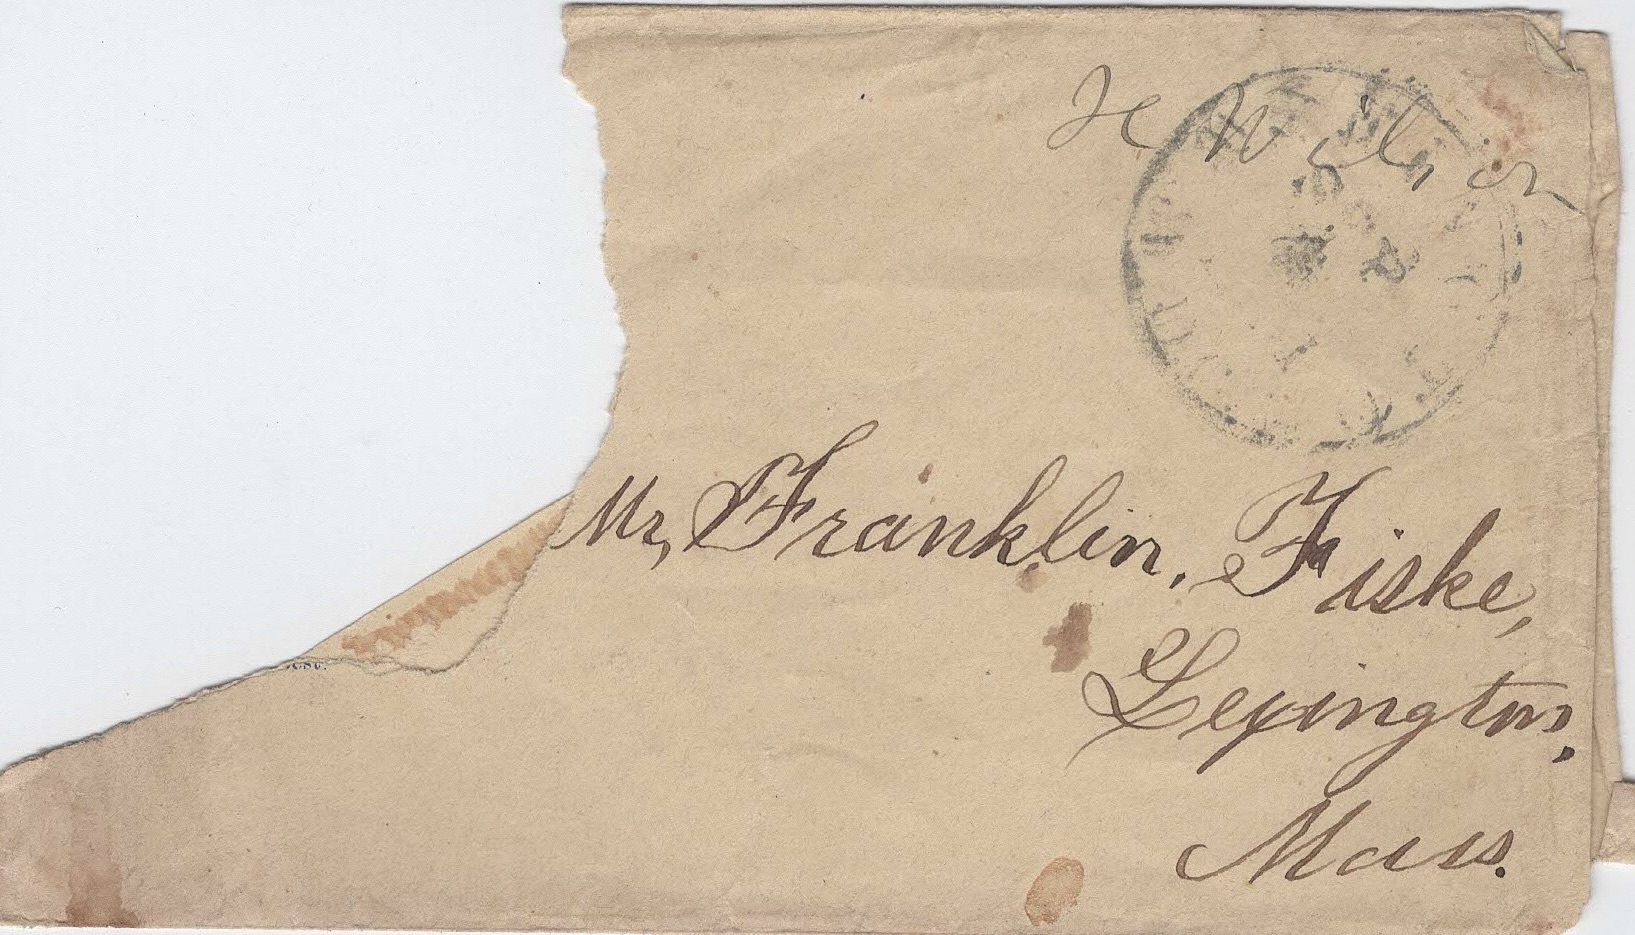 H Wilson
Mr, Franklin, Fiske,
Lexington,
Mass.